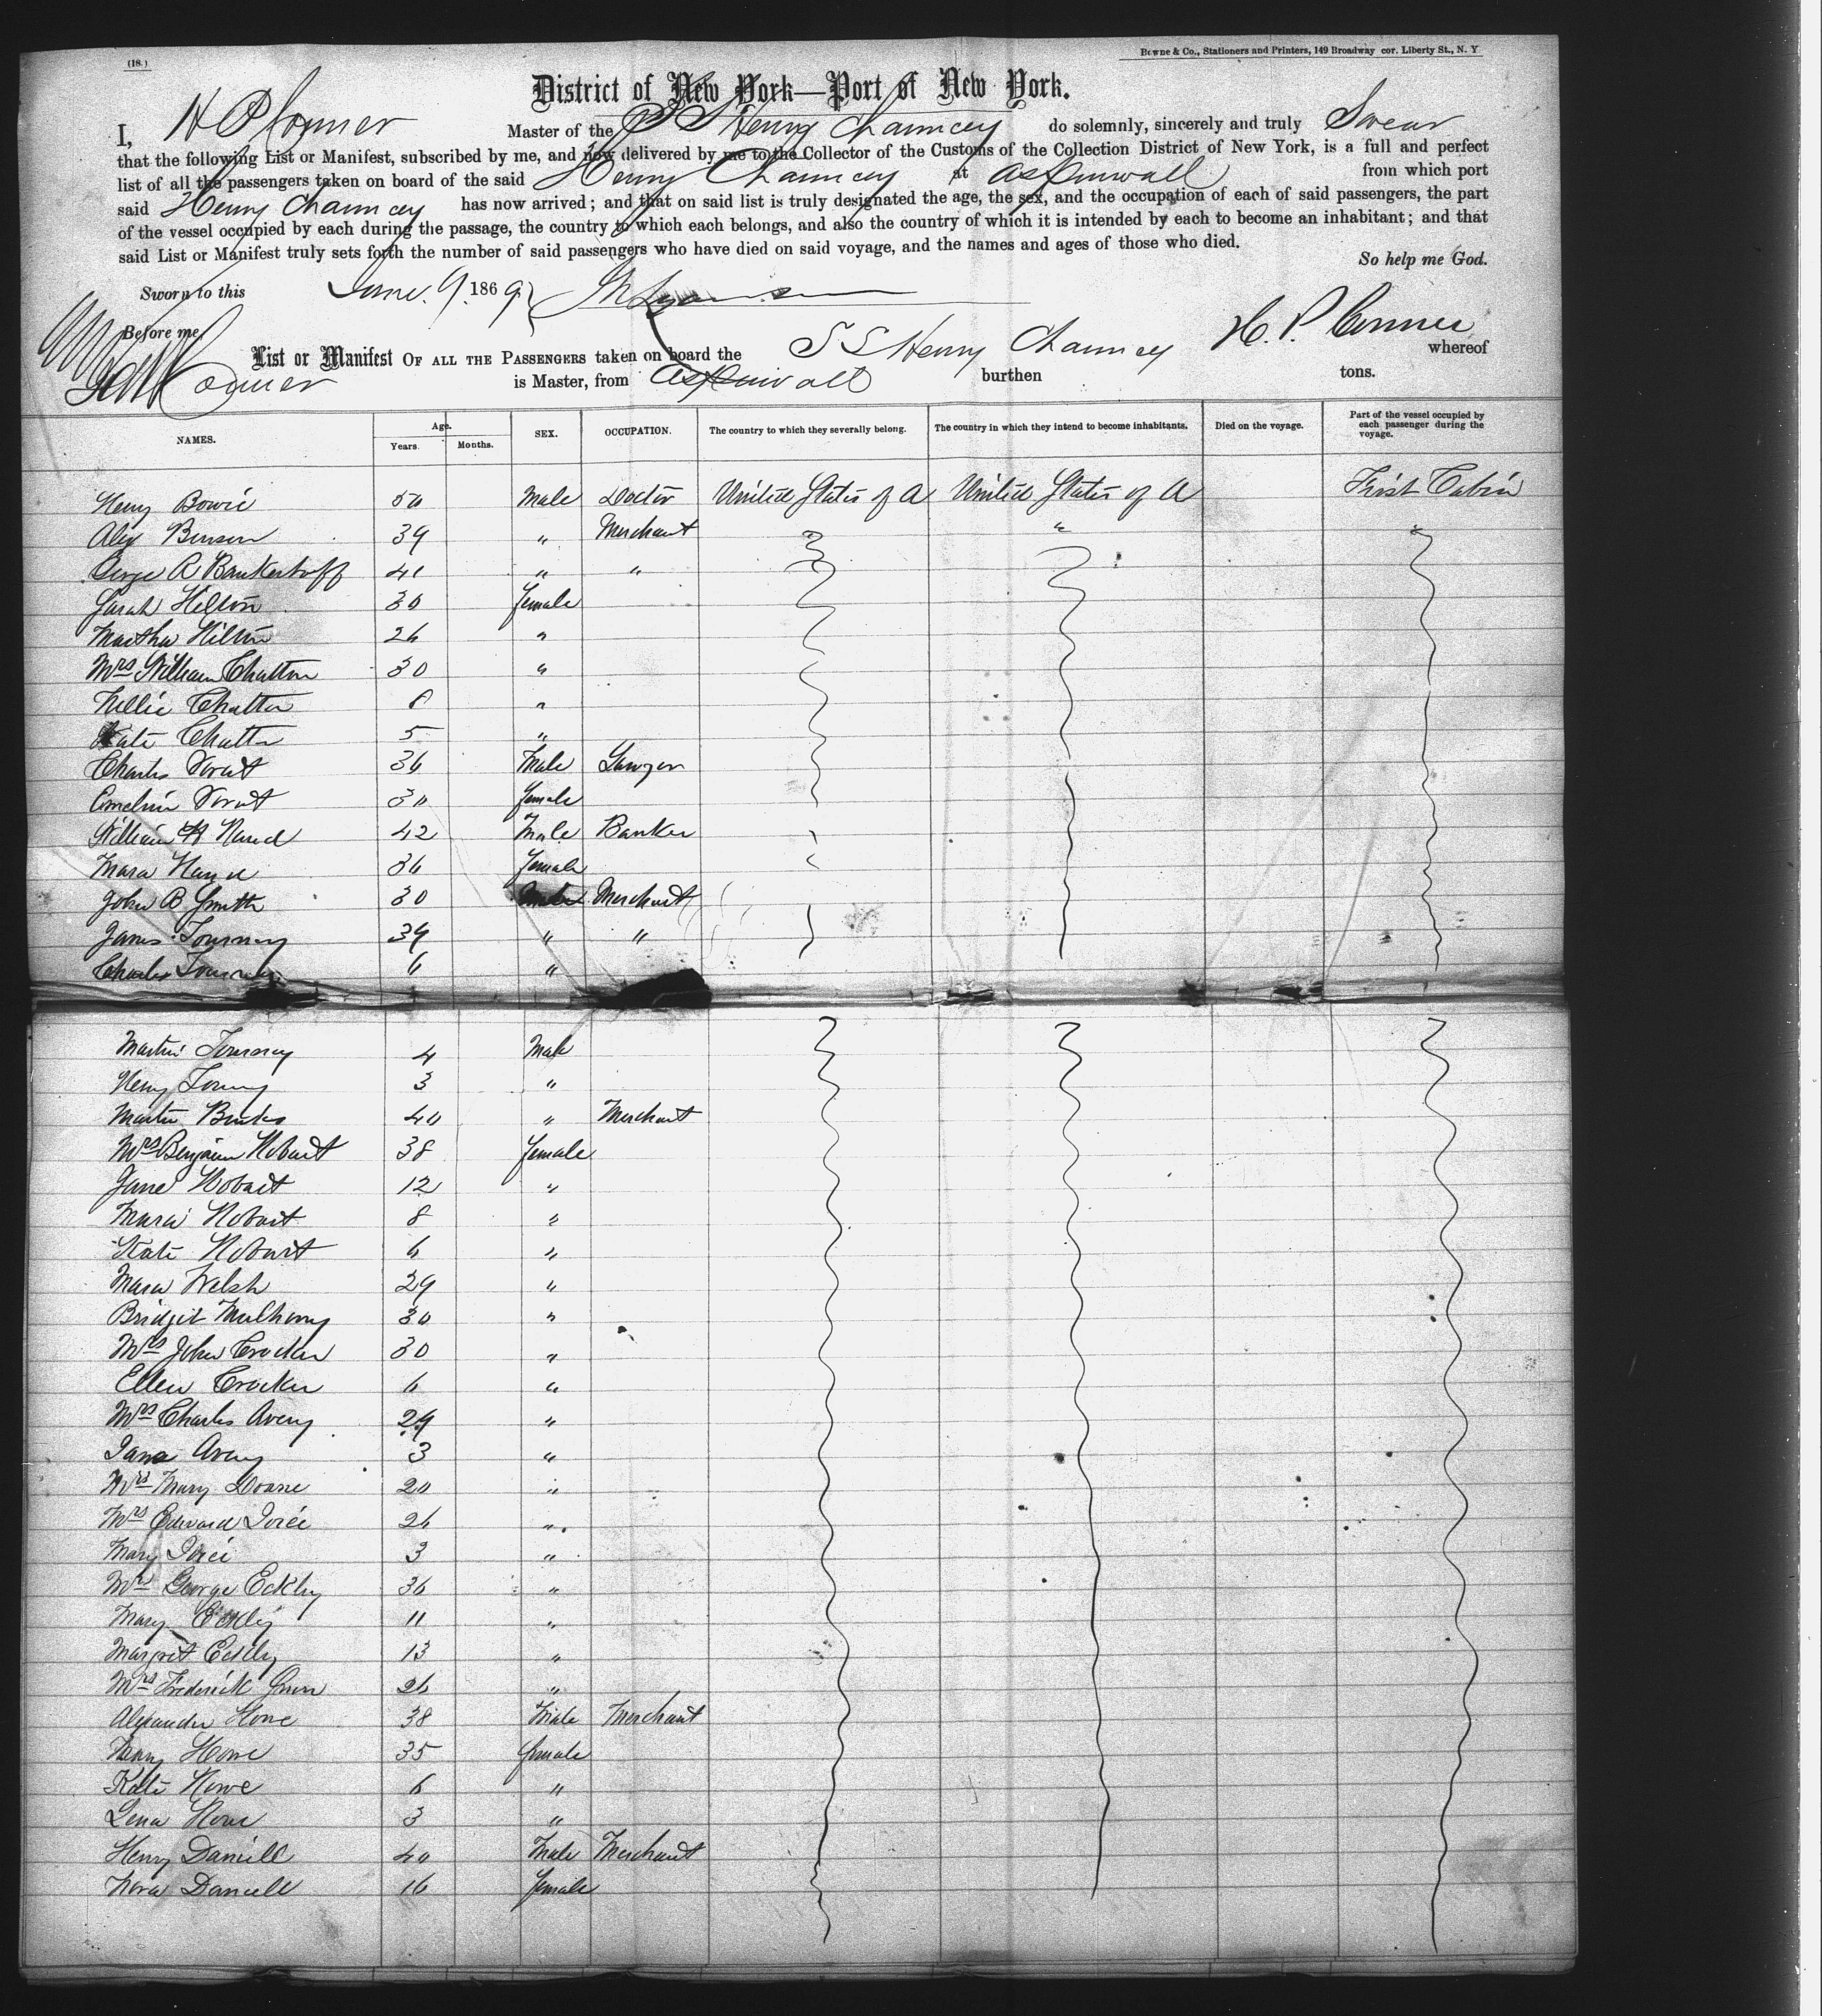 (18.)
Bowne & Co., Stationers and Printers, 149 Broadway cor. Liberty St., N. Y
District of New York—Port of New York.
I, H P Conner Master of the S S Henry Chauncey do solemnly, sincerely and truly Swear
that the following List or Manifest, subscribed by me, and now delivered by me to the Collector of the Customs of the Collection District of New York, is a full and perfect
list of all the passengers taken on board of the said Henry Chauncey at Aspinwall from which port
said Henry Chauncey has now arrived; and that on said list is truly designated the age, the sex, and the occupation of each of said passengers, the part
of the vessel occupied by each during the passage, the country to which each belongs, and also the country of which it is intended by each to become an inhabitant; and that
said List or Manifest truly sets forth the number of said passengers who have died on said voyage, and the names and ages of those who died.
So help me God.
Sworn to this June 9 1869
Before me,
H. P. Conner
List or Manifest OF ALL THE PASSENGERS taken on board the S S Henry Chauncey whereof
is Master, from Aspinwall burthen tons.
NAMES. Age. Years. Months. SEX. OCCUPATION. The country to which they severally belong. The country in which they intend to become inhabitants. Died on the voyage. Part of the vessel occupied by each passenger during the voyage.
Henry Bowie 50 Male Doctor United States of A United States of A First Cabin
Alex Benson 39 " Merchant " "
George A Bankerhoff 41 " "
Sarah Hilton 30 female
Martha Hilton 26 "
Mrs William Chatton 30 "
Nellie Chatton 8 "
Kate Chatton 5 "
Charles 36 Male Lawyer
30 female
William H 42 Male Banker
36 female
John B Smith 30 Male Merchant
James Tourney 39 " "
Charles Tourney 6 "
Martin Tourney 4 Male
Henry 3 "
Martin 40 " Merchant
Mrs Benjamin Hobart 38 female
Jane Hobart 12 "
Maria Hobart 8 "
Kate Hobart 6 "
Mara Welsh 29 "
Bridgit 30 "
Mrs John Crocker 30 "
Ellen Crocker 6 "
Mrs Charles Avery 29 "
Jane Avery 3 "
Mrs Mary Doane 20 "
Mrs Edward 26 "
Mary 3 "
Mrs George Eckley 36 "
Mary Eckley 11 "
Margret Eckley 13 "
Mrs Frederick 26 "
Alexander Howe 38 Male Merchant
Mary Howe 35 female
Kate Howe 6 "
Lena Howe 3 "
Henry Daniell 40 Male Merchant
Nora Daniell 16 female